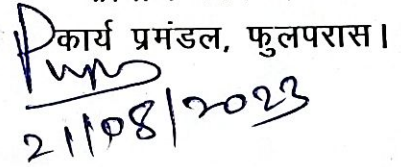 कार्य प्रमंडल, फुलपरास।
21/08/2023